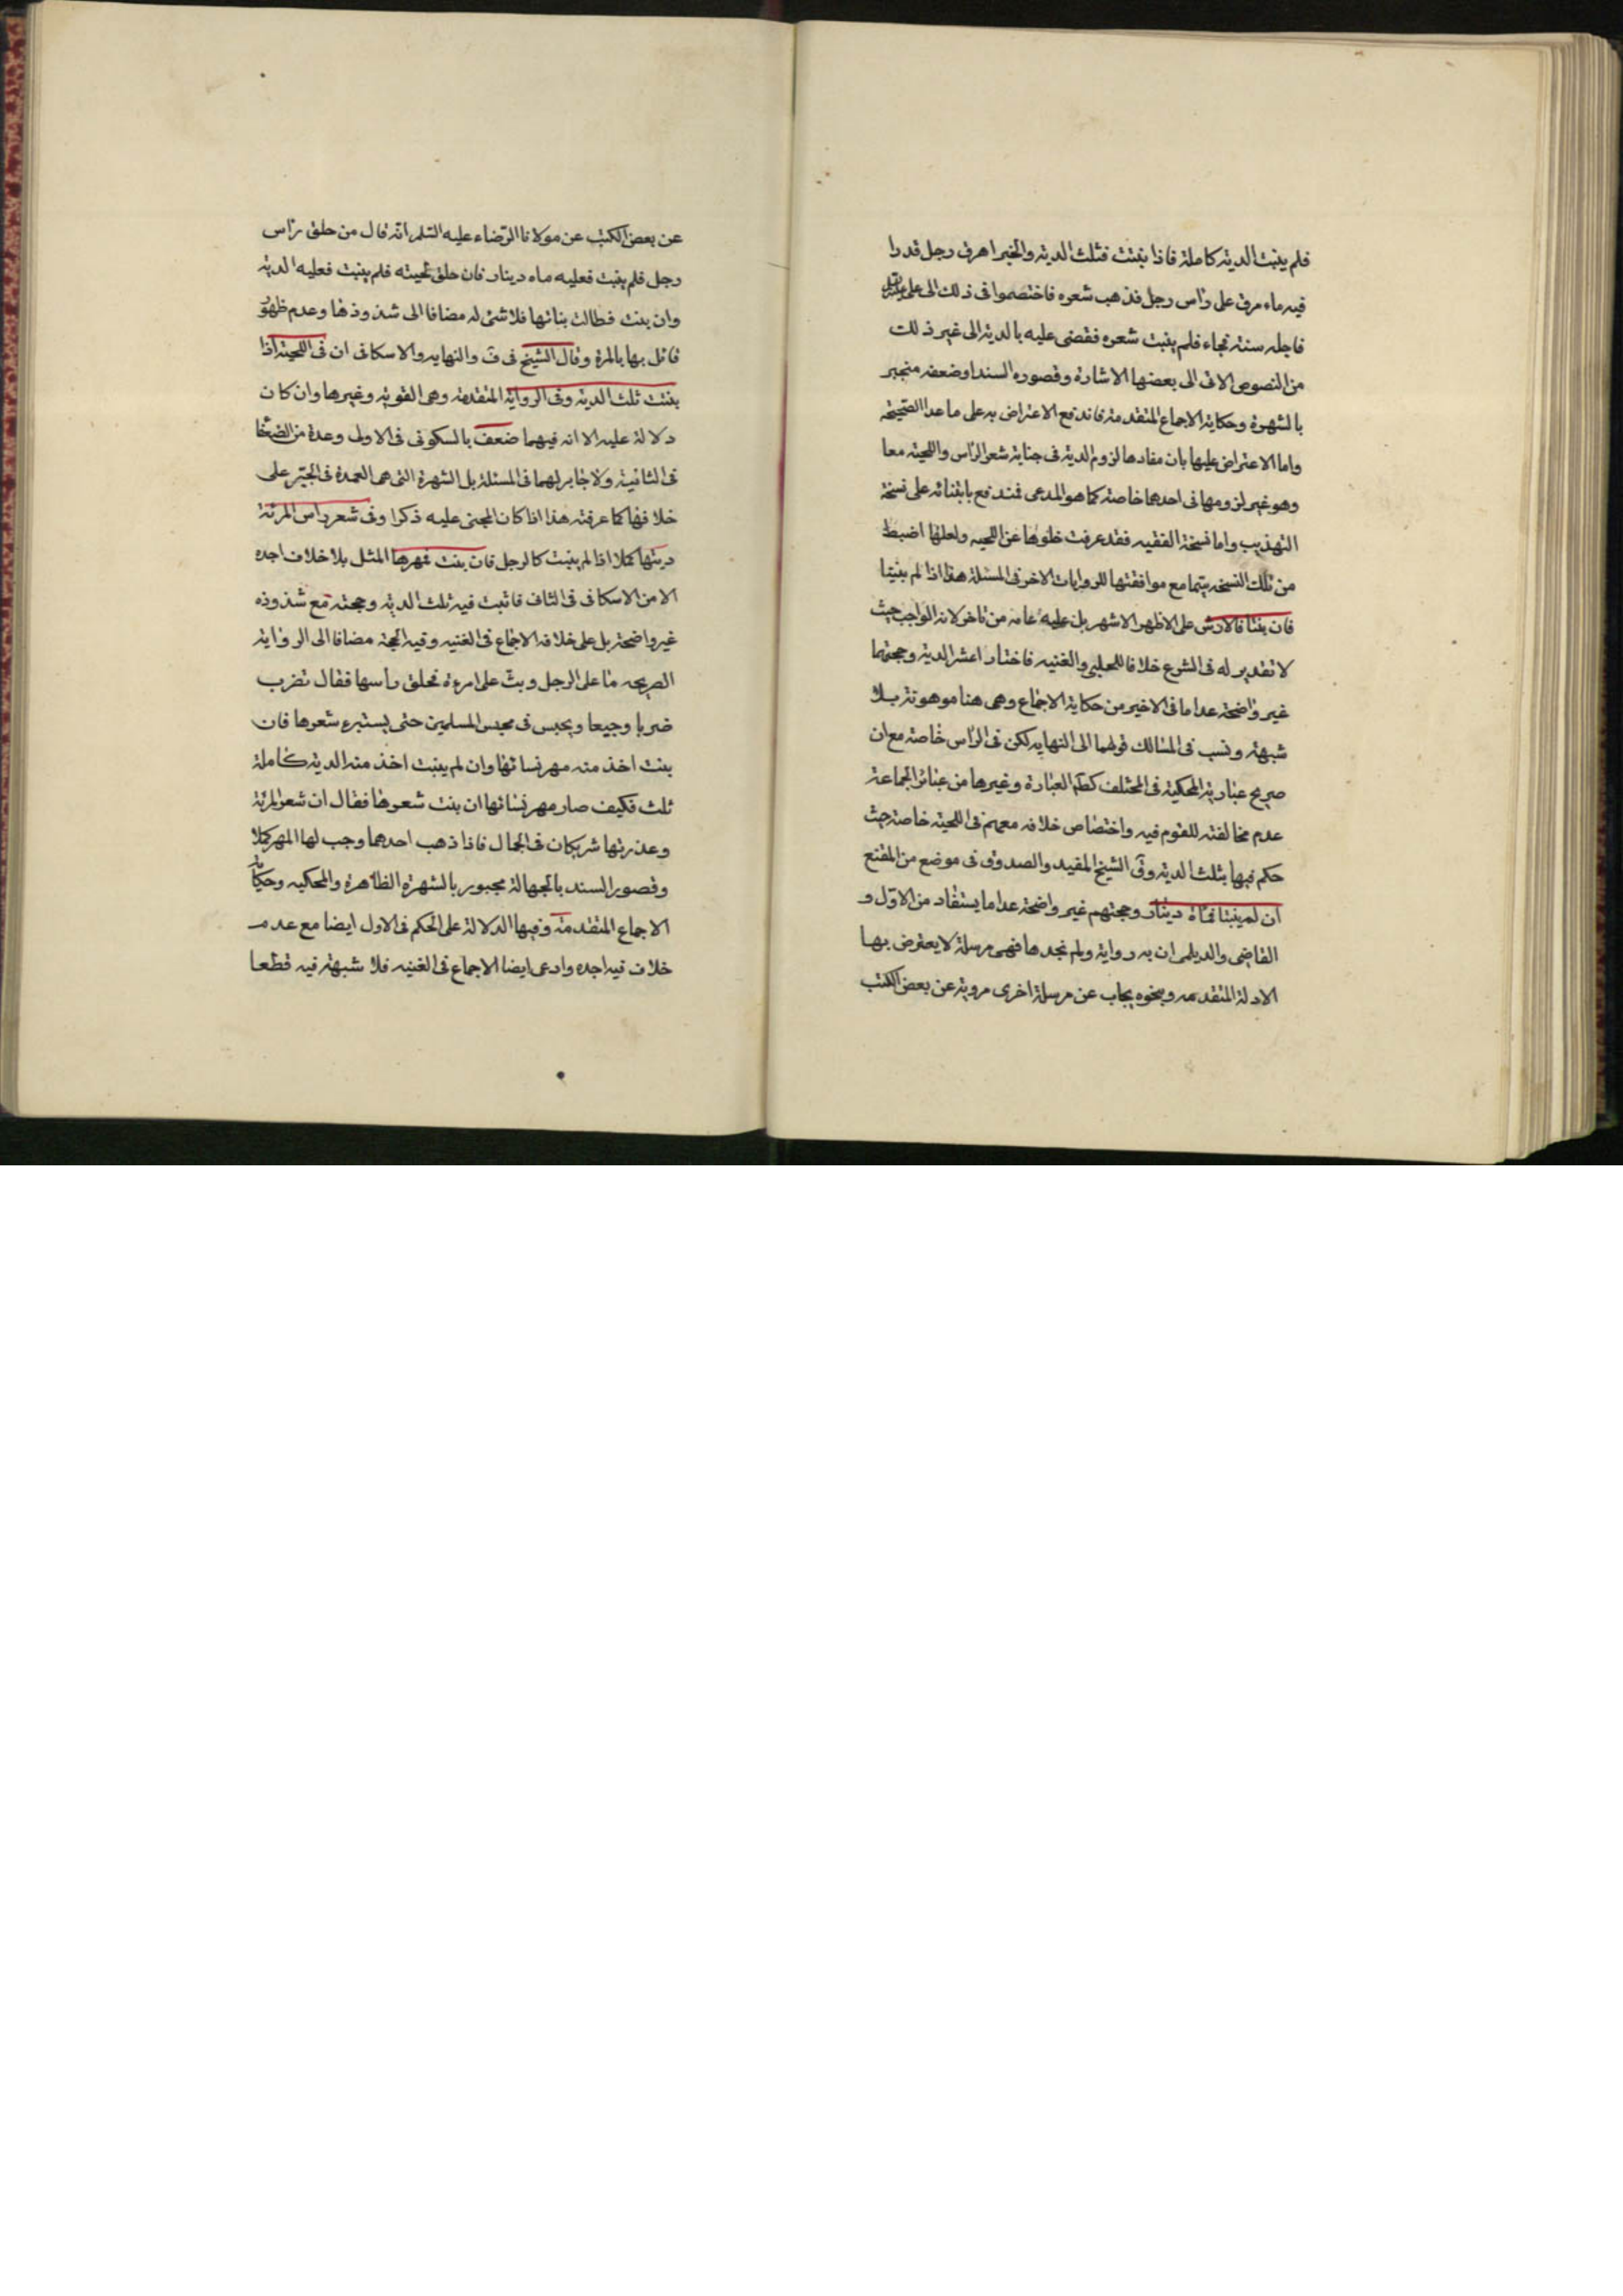 فلم ينبت الدية كاملة فاذا نبتت فثلث الدية والخبر اهرق رجل قدرا
فيه ماء مرق على راس رجل فذهب شعره فاختصموا فى ذلك الى على
فاجله سنة فجاء فلم ينبت شعره فقضى عليه بالدية الى غير ذلك
من النصوص الاتى الى بعضها الاشارة وقصوره السند او ضعفه منجبر
بالشهرة وحكاية الاجماع المتقدمة فاندفع الاعتراض به على ما عدا الصحيحة
واما الاعتراض عليها بان مفادها لزوم الدية فى جناية شعر الراس واللحية معا
وهو غير لزومها فى احدهما خاصة كما هو المدعى فمندفع بابتنائه على نسخة
التهذيب واما نسخة الفقيه فقد عرفت خلوها عن اللحيه ولعلها اضبط
من تلك النسخه سيما مع موافقتها للروايات الاخر فى المسئلة هذا اذا لم ينبتا
فان نبتا فالارش على الاظهر الاشهر بل عليه عامه من تاخر لانه الواجب حيث
لا تقدير له فى الشرع خلافا للحلبى والغنيه فاختار اعشر الدية وحجتهما
غير واضحة عدا ما فى الاخير من حكاية الاجماع وهى هنا موهونة بلا
شبهة ونسب فى المسالك قولهما الى النهايه لكن فى الراس خاصة مع ان
صريح عبارته المحكية فى المختلف كظاهر العبارة وغيرها من عبائر الجماعة
عدم مخالفته للقوم فيه واختصاص خلافه معهم فى اللحية خاصة حيث
حكم فيها بثلث الدية وقال الشيخ المفيد والصدوق فى موضع من المقنع
ان لم ينبتا فمأة دينار وحجتهم غير واضحة عدا ما يستفاد من الاول و
القاضى والديلمى ان به رواية ولم نجدها فهى مرسلة لا يعترض بها
الادلة المتقدمه وبنحوه يجاب عن مرسلة اخرى مروية عن بعض الكتب
عن بعض الكتب عن مولانا الرضاء عليه السلم انه قال من حلق راس
رجل فلم ينبت فعليه ماه دينار فان حلق لحيته فلم ينبت فعليه الدية
وان نبت فطالت نباتها فلا شئ له مضافا الى شذوذها وعدم ظهور
قائل بها بالمرة وقال الشيخ فى ف والنهايه والاسكافى ان فى اللحية اذا
نبتت ثلث الدية وفى الرواية المتقدمة وهى القوية وغيرها وان كان
دلالة عليه الا انه فيهما ضعف بالسكونى فى الاولى وعدة من الضعفا
فى الثانية ولا جابر لهما فى المسئلة بل الشهرة التى هى العمدة فى الجبر على
خلافها كما عرفته هذا اذا كان المجنى عليه ذكرا وفى شعر راس المرئة
ديتها كملا اذا لم ينبت كالرجل فان نبت فمهرها المثل بلا خلاف اجده
الا من الاسكافى فى الثانى فاثبت فيه ثلث الدية وحجته مع شذوذه
غير واضحة بل على خلافه الاجماع فى الغنيه وفيه الحجة مضافا الى الرواية
الصريحه ما على الرجل وثب على امرءة فحلق رأسها فقال تضرب
ضربا وجيعا ويحبس فى محبس المسلمين حتى يستبرء شعرها فان
نبت اخذ منه مهر نسائها وان لم ينبت اخذ منه الدية كاملة
قلت فكيف صار مهر نسائها ان نبت شعرها فقال ان شعر المرئة
وعذرتها شريكان فى الجمال فاذا ذهب احدهما وجب لها المهر كملا
وقصور السند بالجهالة مجبور بالشهرة الظاهرة والمحكيه وحكاية
الاجماع المتقدمة وفيها الدلالة على الحكم فى الاول ايضا مع عدم
خلاف فيه اجده وادعى ايضا الاجماع فى الغنيه فلا شبهة فيه قطعا